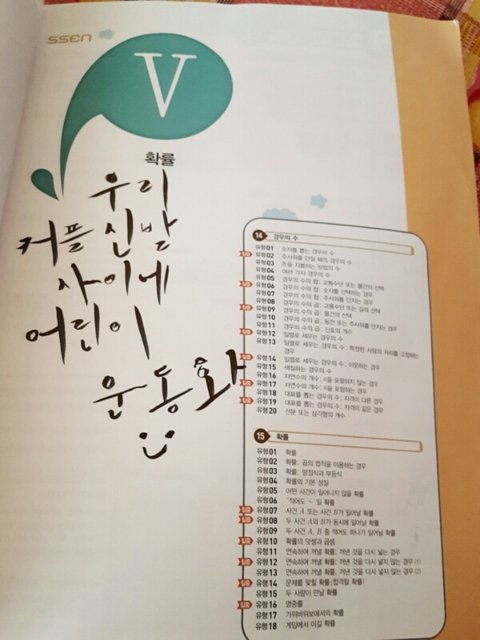 SSEN
V
확률
우리
커플 신발
사이에
어린이
운동화
14 경우의 수
유형01 숫자를 뽑는 경우의 수
유형02 주사위를 던질 때의 경우의 수
유형03 돈을 지불하는 방법의 수
유형04 여러 가지 경우의 수
유형05 경우의 수의 합; 교통수단 또는 물건의 선택
유형06 경우의 수의 합; 숫자를 선택하는 경우
유형07 경우의 수의 합; 주사위를 던지는 경우
유형08 경우의 수의 곱; 교통수단 또는 길의 선택
유형09 경우의 수의 곱; 물건의 선택
유형10 경우의 수의 곱; 동전 또는 주사위를 던지는 경우
유형11 경우의 수의 곱; 신호의 개수
유형12 일렬로 세우는 경우의 수
유형13 일렬로 세우는 경우의 수; 특정한 사람의 자리를 고정하는
경우
유형14 일렬로 세우는 경우의 수; 이웃하는 경우
유형15 색칠하는 경우의 수
유형16 자연수의 개수; 0을 포함하지 않는 경우
유형17 자연수의 개수; 0을 포함하는 경우
유형18 대표를 뽑는 경우의 수; 자격이 다른 경우
유형19 대표를 뽑는 경우의 수; 자격이 같은 경우
유형20 선분 또는 삼각형의 개수
15 확률
유형01 확률
유형02 확률; 곱의 법칙을 이용하는 경우
유형03 확률; 방정식과 부등식
유형04 확률의 기본 성질
유형05 어떤 사건이 일어나지 않을 확률
유형06 '적어도 ~'일 확률
유형07 사건 A 또는 사건 B가 일어날 확률
유형08 두 사건 A와 B가 동시에 일어날 확률
유형09 두 사건 A, B 중 적어도 하나가 일어날 확률
유형10 확률의 덧셈과 곱셈
유형11 연속하여 꺼낼 확률; 꺼낸 것을 다시 넣는 경우
유형12 연속하여 꺼낼 확률; 꺼낸 것을 다시 넣지 않는 경우 (1)
유형13 연속하여 꺼낼 확률; 꺼낸 것을 다시 넣지 않는 경우 (2)
유형14 문제를 맞힐 확률(합격할 확률)
유형15 두 사람이 만날 확률
유형16 명중률
유형17 가위바위보에서의 확률
유형18 게임에서 이길 확률